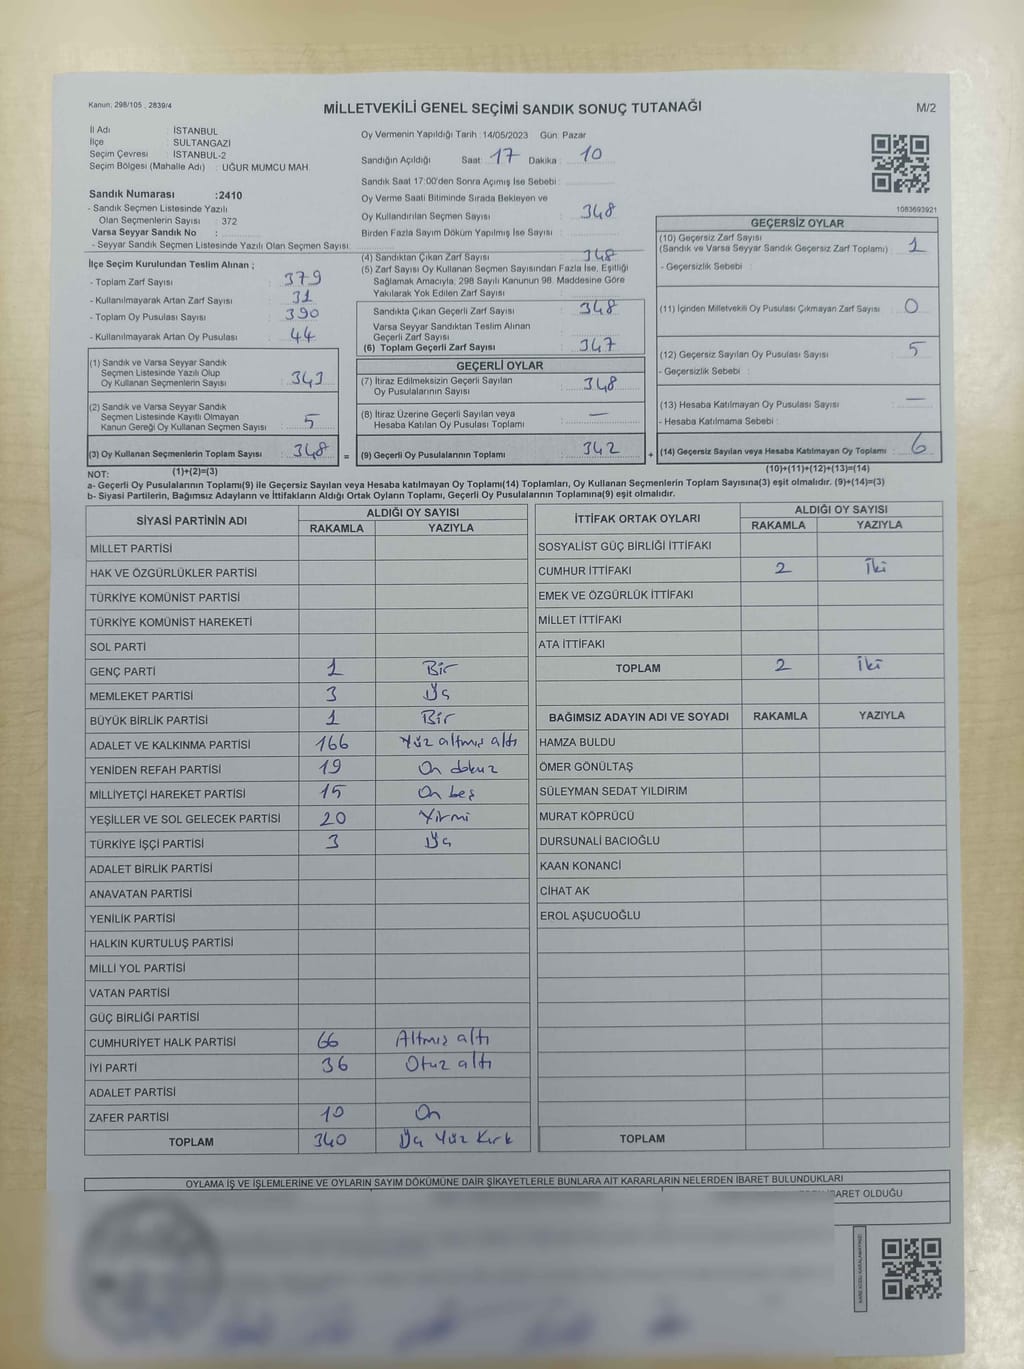 Kanun, 298/105 , 2839/4
MİLLETVEKİLİ GENEL SEÇİMİ SANDIK SONUÇ TUTANAĞI
M/2
İl Adı : İSTANBUL
İlçe : SULTANGAZİ
Seçim Çevresi : İSTANBUL-2
Seçim Bölgesi (Mahalle Adı) : UĞUR MUMCU MAH.
Sandık Numarası :2410
- Sandık Seçmen Listesinde Yazılı
Olan Seçmenlerin Sayısı : 372
Varsa Seyyar Sandık No :
- Seyyar Sandık Seçmen Listesinde Yazılı Olan Seçmen Sayısı:
İlçe Seçim Kurulundan Teslim Alınan ;
- Toplam Zarf Sayısı : 379
- Kullanılmayarak Artan Zarf Sayısı : 31
- Toplam Oy Pusulası Sayısı : 390
- Kullanılmayarak Artan Oy Pusulası : 44
(1) Sandık ve Varsa Seyyar Sandık
Seçmen Listesinde Yazılı Olup
Oy Kullanan Seçmenlerin Sayısı : 343
(2) Sandık ve Varsa Seyyar Sandık
Seçmen Listesinde Kayıtlı Olmayan
Kanun Gereği Oy Kullanan Seçmen Sayısı : 5
(3) Oy Kullanan Seçmenlerin Toplam Sayısı : 348 =
Oy Vermenin Yapıldığı Tarih :14/05/2023 Gün: Pazar
Sandığın Açıldığı Saat: 17 Dakika : 10
Sandık Saat 17:00'den Sonra Açımış İse Sebebi :
Oy Verme Saati Bitiminde Sırada Bekleyen ve
Oy Kullandırılan Seçmen Sayısı : 348
Birden Fazla Sayım Döküm Yapılmış İse Sayısı :
(4) Sandıktan Çıkan Zarf Sayısı : 348
(5) Zarf Sayısı Oy Kullanan Seçmen Sayısından Fazla İse, Eşitliği
Sağlamak Amacıyla; 298 Sayılı Kanunun 98. Maddesine Göre
Yakılarak Yok Edilen Zarf Sayısı :
Sandıkta Çıkan Geçerli Zarf Sayısı : 348
Varsa Seyyar Sandıktan Teslim Alınan
Geçerli Zarf Sayısı :
(6) Toplam Geçerli Zarf Sayısı : 347
GEÇERLİ OYLAR
(7) İtiraz Edilmeksizin Geçerli Sayılan
Oy Pusulalarının Sayısı : 348
(8) İtiraz Üzerine Geçerli Sayılan veya
Hesaba Katılan Oy Pusulası Toplamı : —
(9) Geçerli Oy Pusulalarının Toplamı : 342 +
1083693921
GEÇERSİZ OYLAR
(10) Geçersiz Zarf Sayısı
(Sandık ve Varsa Seyyar Sandık Geçersiz Zarf Toplamı) : 1
- Geçersizlik Sebebi :
(11) İçinden Milletvekili Oy Pusulası Çıkmayan Zarf Sayısı : 0
(12) Geçersiz Sayılan Oy Pusulası Sayısı : 5
- Geçersizlik Sebebi :
(13) Hesaba Katılmayan Oy Pusulası Sayısı : —
- Hesaba Katılmama Sebebi :
(14) Geçersiz Sayılan veya Hesaba Katılmayan Oy Toplamı : 6
NOT: (1)+(2)=(3) (10)+(11)+(12)+(13)=(14)
a- Geçerli Oy Pusulalarının Toplamı(9) ile Geçersiz Sayılan veya Hesaba katılmayan Oy Toplamı(14) Toplamları, Oy Kullanan Seçmenlerin Toplam Sayısına(3) eşit olmalıdır. (9)+(14)=(3)
b- Siyasi Partilerin, Bağımsız Adayların ve İttifakların Aldığı Ortak Oyların Toplamı, Geçerli Oy Pusulalarının Toplamına(9) eşit olmalıdır.
SİYASİ PARTİNİN ADI ALDIĞI OY SAYISI
RAKAMLA YAZIYLA
MİLLET PARTİSİ
HAK VE ÖZGÜRLÜKLER PARTİSİ
TÜRKİYE KOMÜNİST PARTİSİ
TÜRKİYE KOMÜNİST HAREKETİ
SOL PARTİ
GENÇ PARTİ 1 Bir
MEMLEKET PARTİSİ 3 Üç
BÜYÜK BİRLİK PARTİSİ 1 Bir
ADALET VE KALKINMA PARTİSİ 166 Yüz altmış altı
YENİDEN REFAH PARTİSİ 19 On dokuz
MİLLİYETÇİ HAREKET PARTİSİ 15 On beş
YEŞİLLER VE SOL GELECEK PARTİSİ 20 Yirmi
TÜRKİYE İŞÇİ PARTİSİ 3 Üç
ADALET BİRLİK PARTİSİ
ANAVATAN PARTİSİ
YENİLİK PARTİSİ
HALKIN KURTULUŞ PARTİSİ
MİLLİ YOL PARTİSİ
VATAN PARTİSİ
GÜÇ BİRLİĞİ PARTİSİ
CUMHURİYET HALK PARTİSİ 66 Altmış altı
İYİ PARTİ 36 Otuz altı
ADALET PARTİSİ
ZAFER PARTİSİ 10 On
TOPLAM 340 Üç Yüz Kırk
İTTİFAK ORTAK OYLARI ALDIĞI OY SAYISI
RAKAMLA YAZIYLA
SOSYALİST GÜÇ BİRLİĞİ İTTİFAKI
CUMHUR İTTİFAKI 2 İki
EMEK VE ÖZGÜRLÜK İTTİFAKI
MİLLET İTTİFAKI
ATA İTTİFAKI
TOPLAM 2 İki
BAĞIMSIZ ADAYIN ADI VE SOYADI RAKAMLA YAZIYLA
HAMZA BULDU
ÖMER GÖNÜLTAŞ
SÜLEYMAN SEDAT YILDIRIM
MURAT KÖPRÜCÜ
DURSUNALİ BACIOĞLU
KAAN KONANCİ
CİHAT AK
EROL AŞUCUOĞLU
TOPLAM
OYLAMA İŞ VE İŞLEMLERİNE VE OYLARIN SAYIM DÖKÜMÜNE DAİR ŞİKAYETLERLE BUNLARA AİT KARARLARIN NELERDEN İBARET BULUNDUKLARI
BARET OLDUĞU